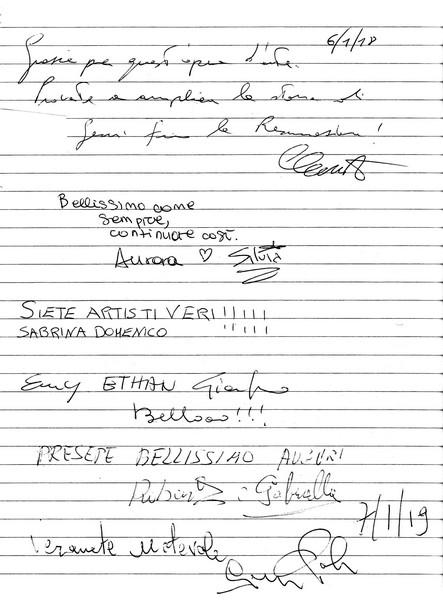 6/1/18
Grazie per quest'opera d'arte.
Provate a ampliare la storia di
Gesù fino la Resurrezione!
Bellissimo come
sempre,
continuate così.
Aurora ♡ Silvia
SIETE ARTISTI VERI!!!!!!
SABRINA DOMENICO
ETHAN
Belloooo!!!
PRESEPE BELLISSIMO AUGURI
Gabriella
7/1/19
Veramente Notevole